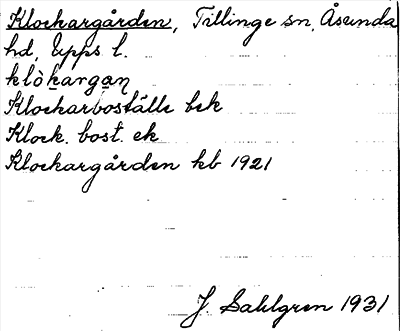 Klockargården, Tillinge sn, Åsunda
hd, Upps l.
klòkargan
Klockarboställe bek
Klock. bost. ek
Klockargården kb 1921
J. Sahlgren 1931